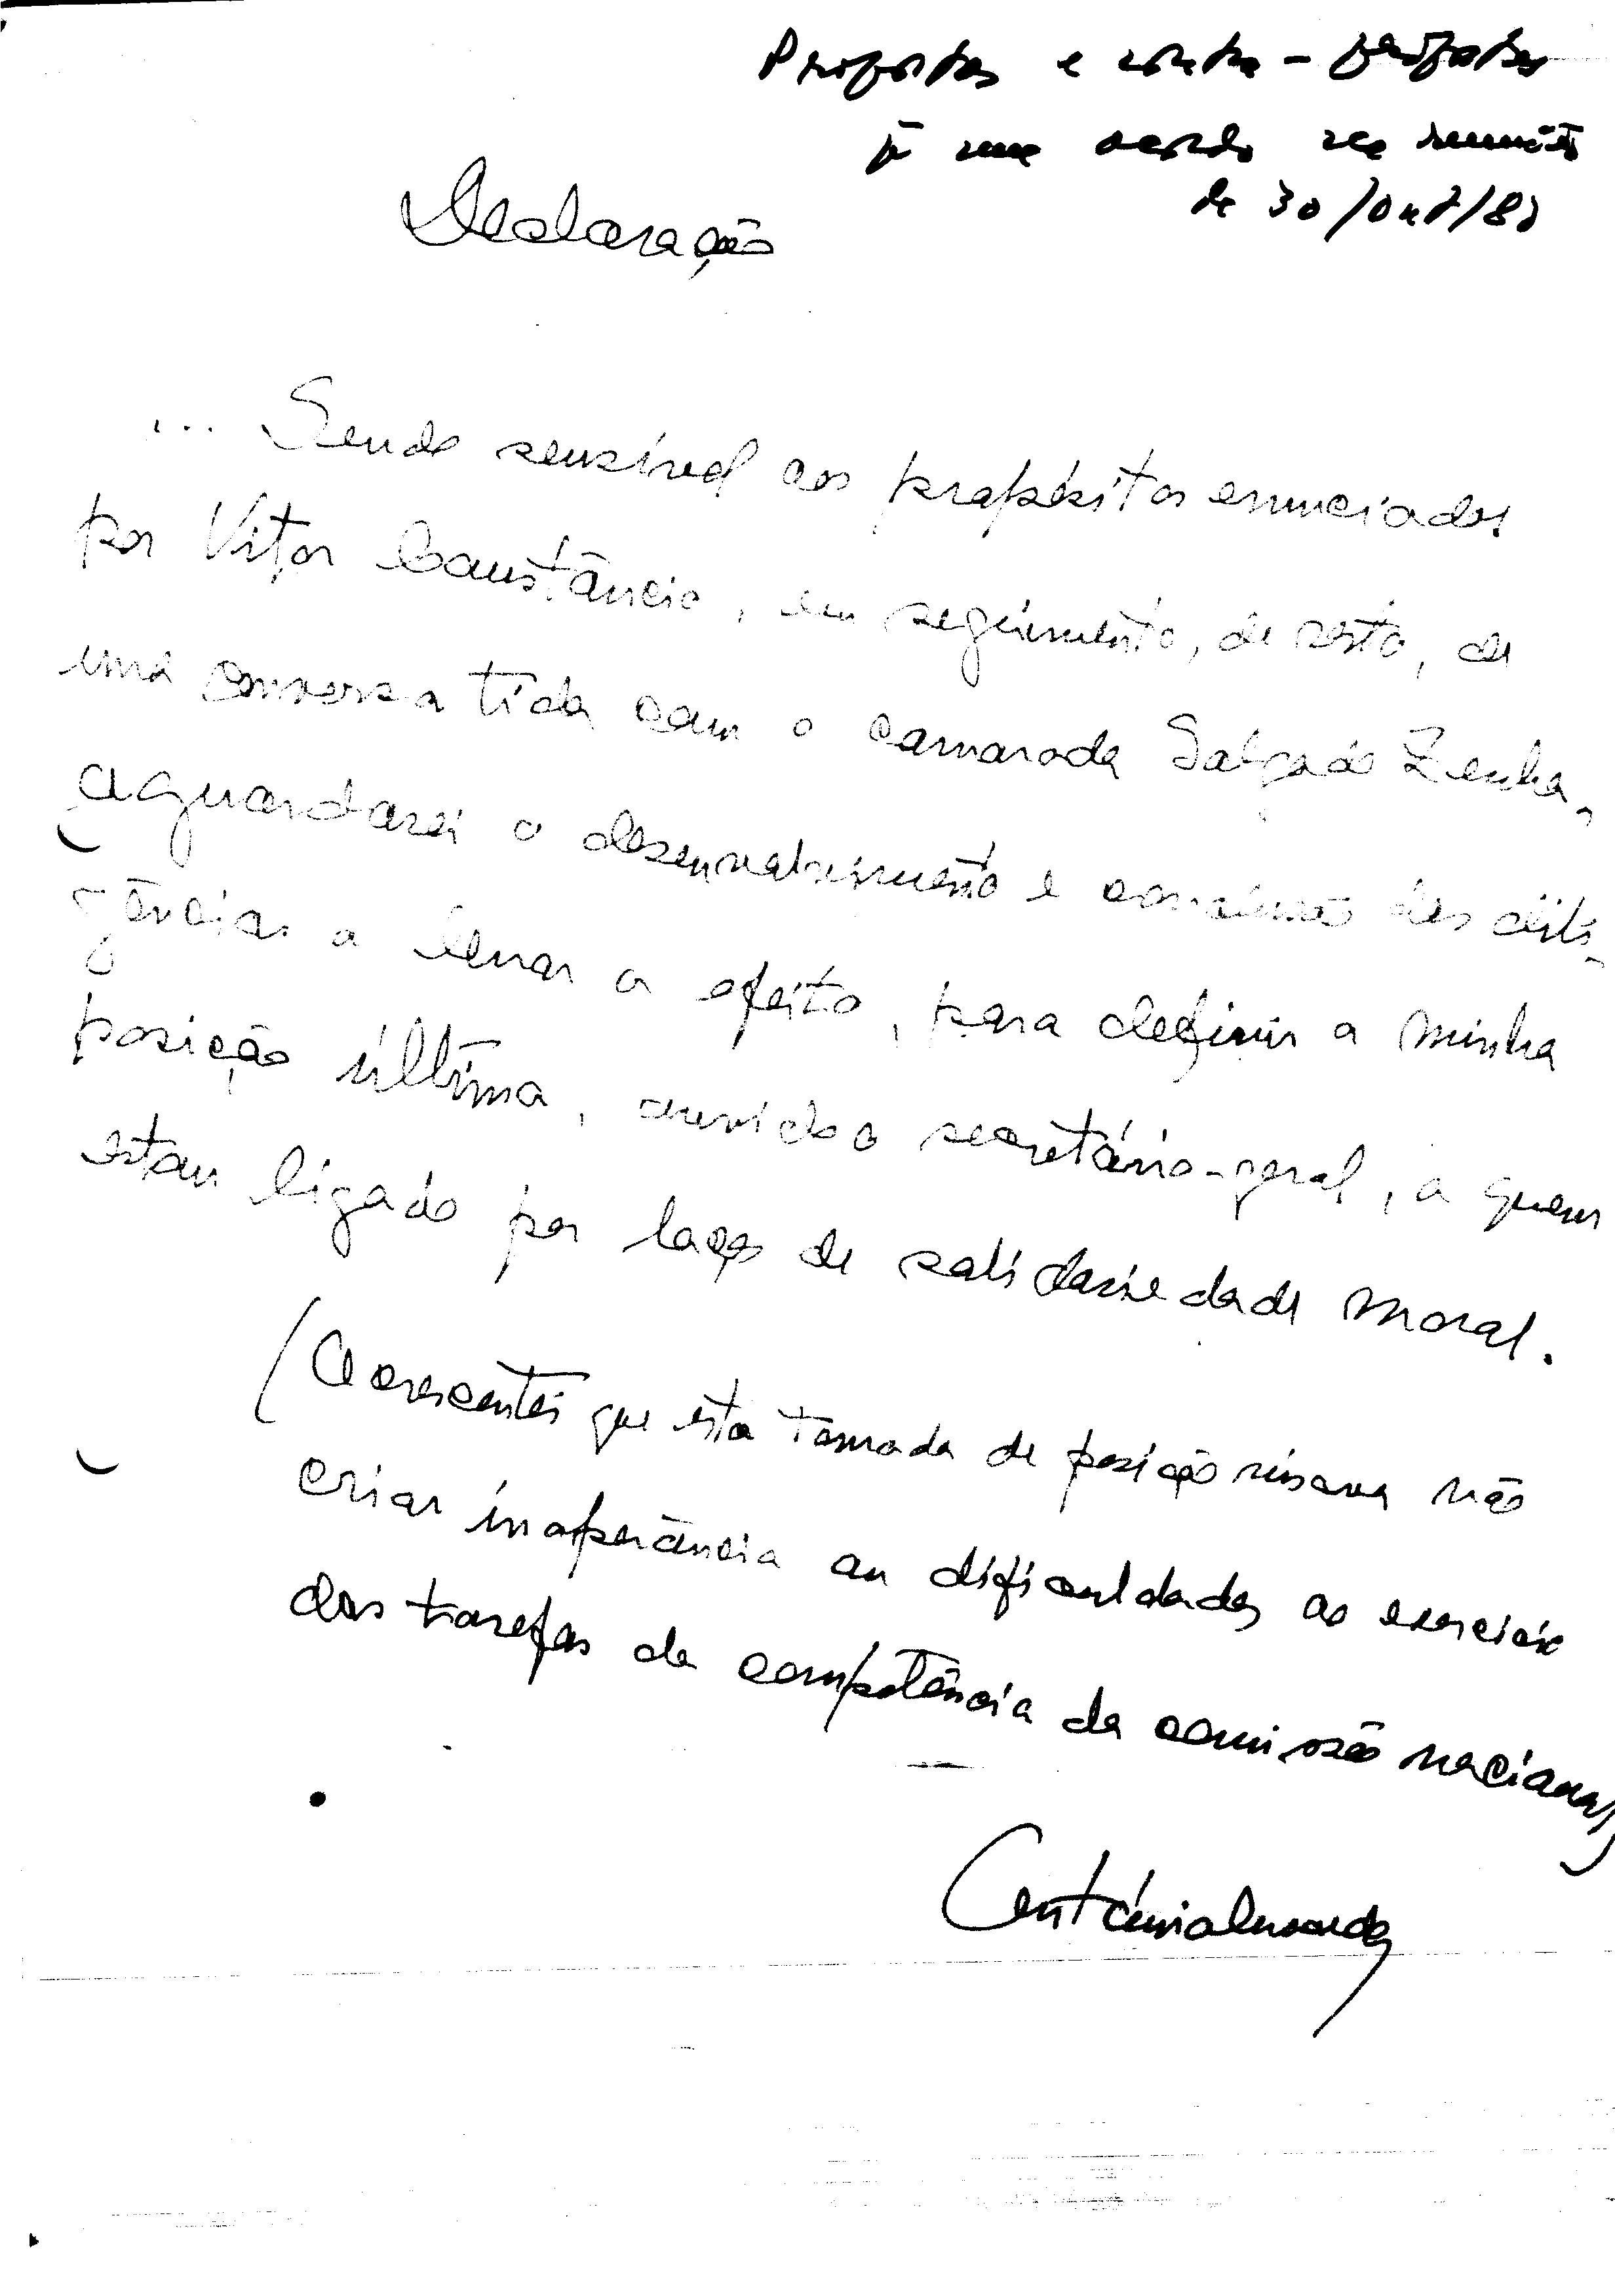 Propostas e contra-propostas
p/ um acordo na reunião
de 30/Out/80
Declaração
... Sendo sensível aos propósitos enunciados
por Vítor Constâncio, em seguimento, de resto, de
uma conversa tida com o camarada Salgado Zenha,
aguardarei o desenvolvimento e conclusão das dili-
gências a levar a efeito, para definir a minha
posição última, ouvido o secretário-geral, a quem
estou ligado por laços de solidariedade moral.
(Acrescentei que esta tomada de posição visava não
criar inoperância ou dificuldades ao exercício
das tarefas da competência da comissão nacional)
António Arnaut